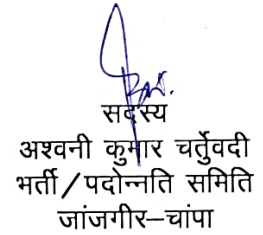 सदस्य
अश्वनी कुमार चर्तुवदी
भर्ती/पदोन्नति समिति
जांजगीर–चांपा